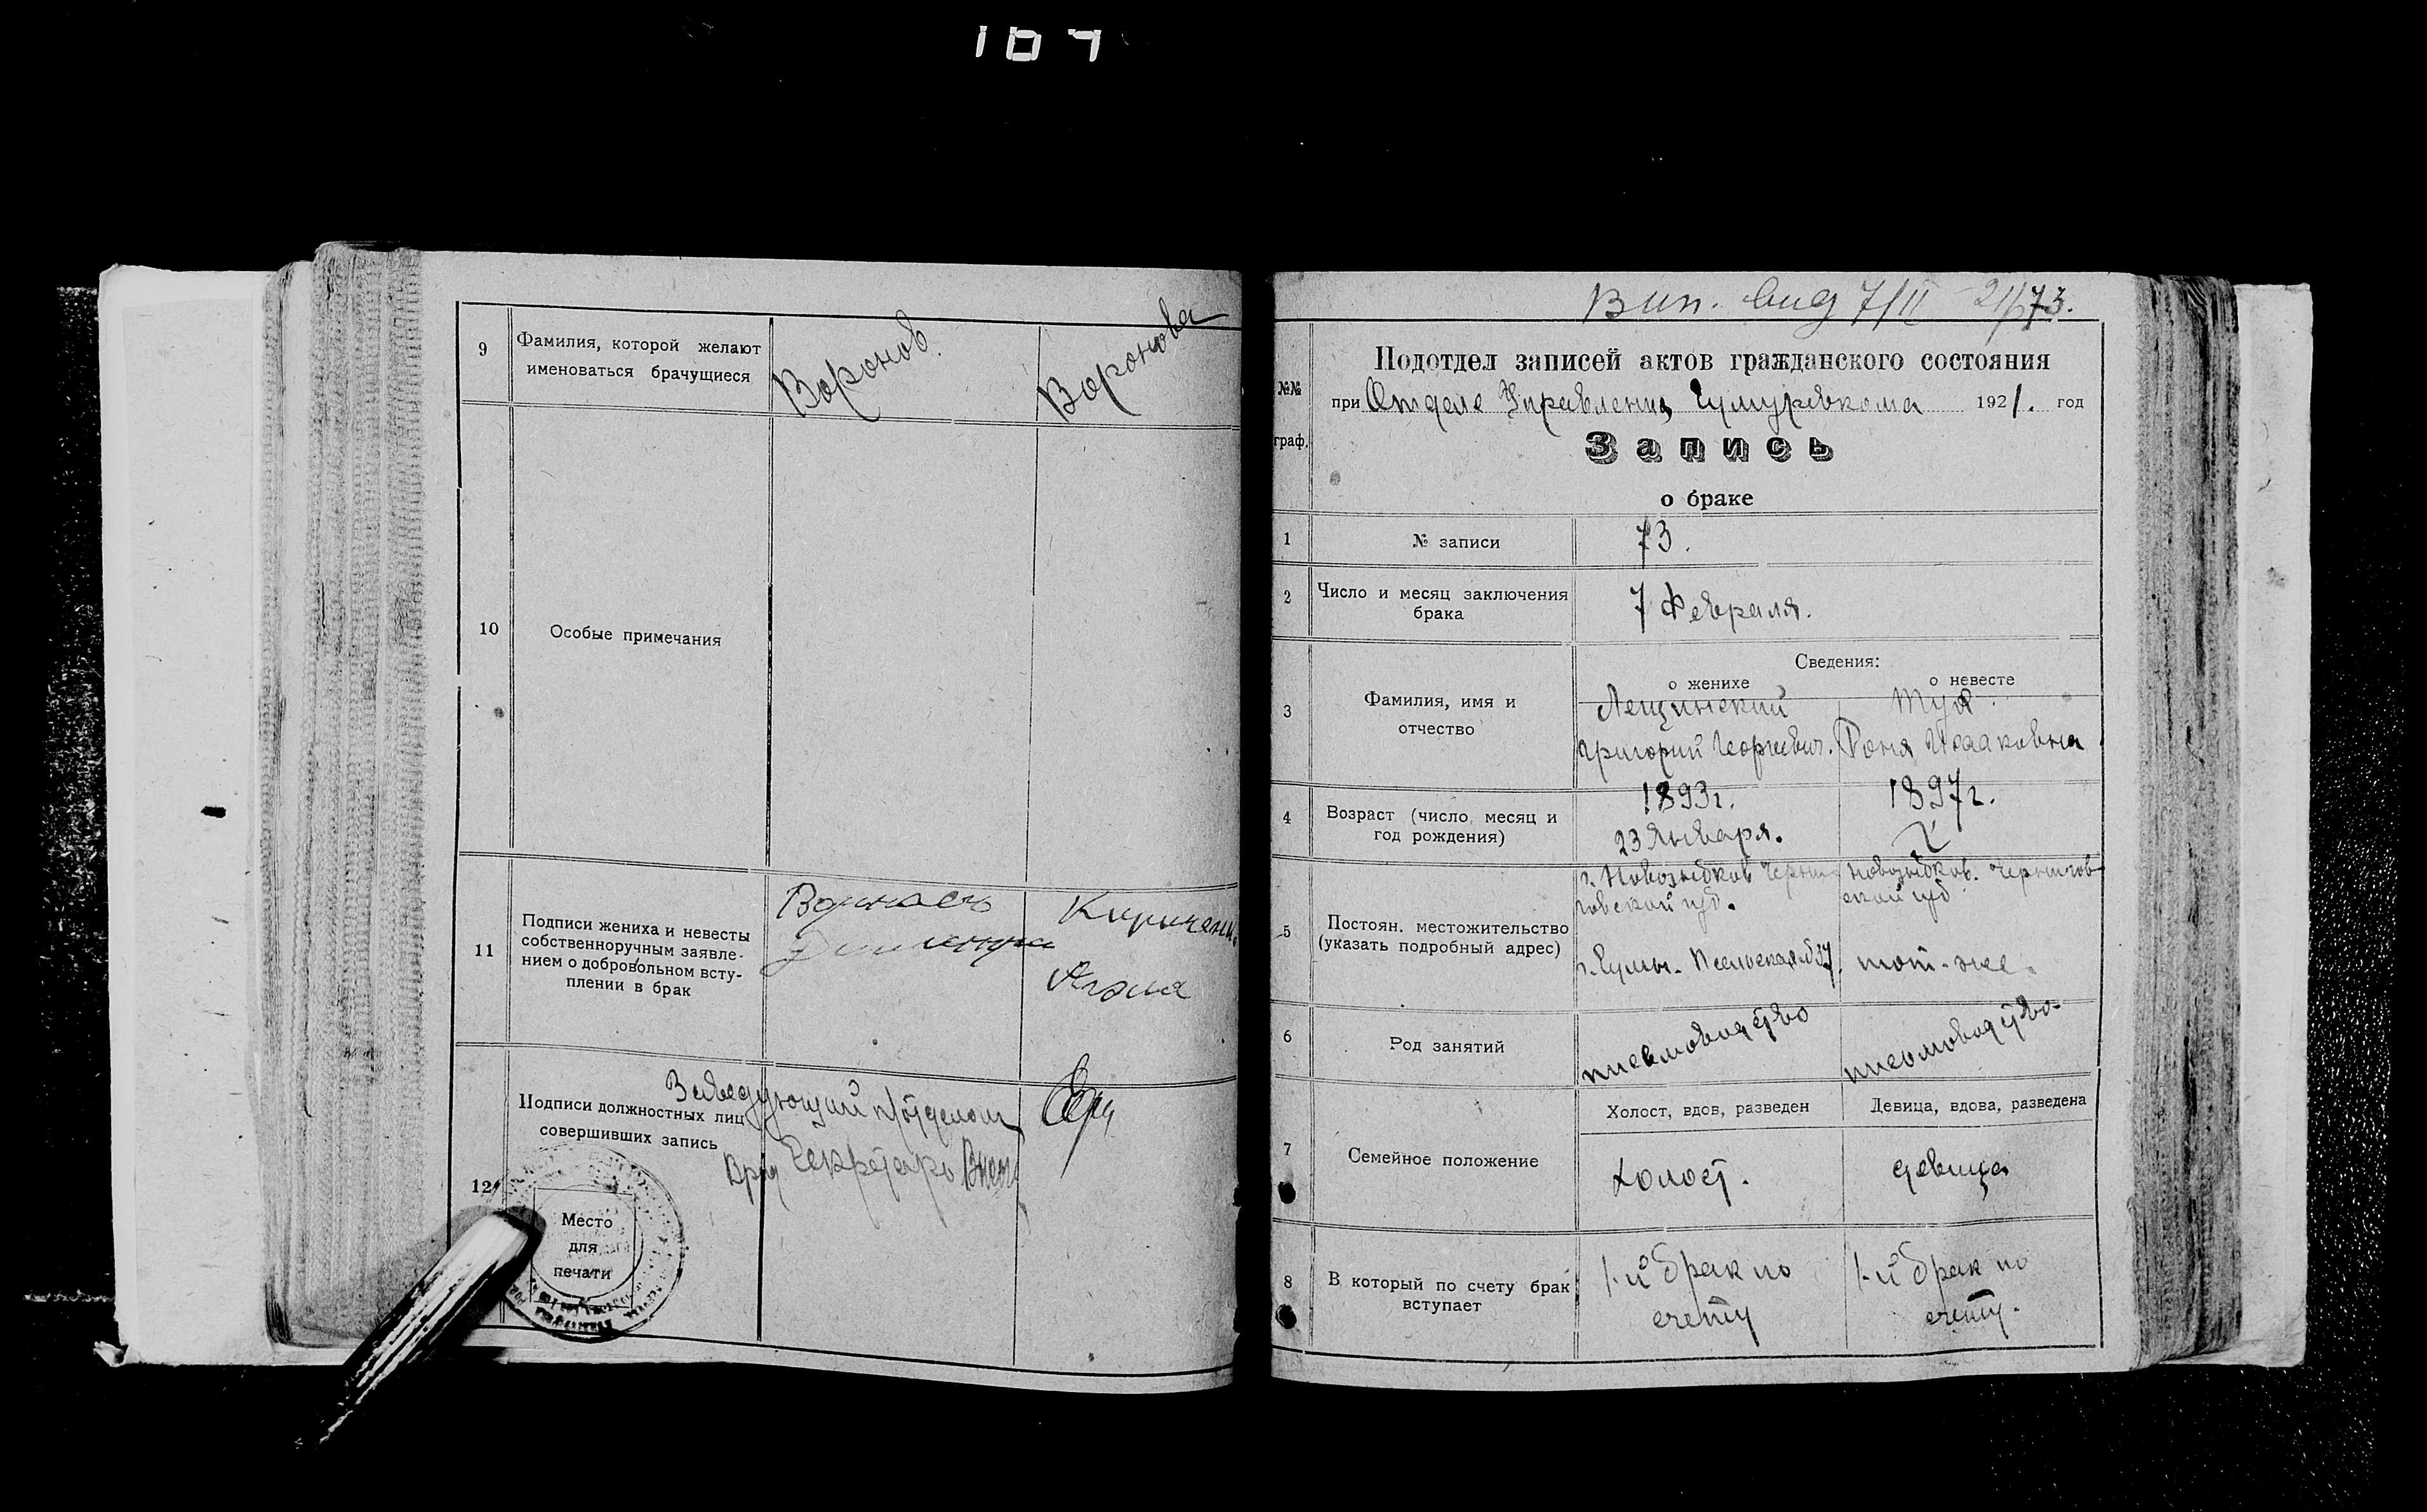 107
9
Фамилия, которой желают
именоваться брачущиеся
Воронов.
Воронова
10
Особые примечания
11
Подписи жениха и невесты
собственноручным заявле-
нием о добровольном всту-
плении в брак
Кириченк
12
Подписи должностных лиц
совершивших запись
Заведующий п/отделом
Секретарь
Место
для
печати
Вип. вид 7/II 21 73.
№№
граф.
Подотдел записей актов гражданского состояния
при Отделе Управления Сумуревкома 1921. год
Запись
о браке
1
№ записи
73.
2
Число и месяц заключения
брака
7 Февраля.
3
Фамилия, имя и
отчество
Сведения:
о женихе
о невесте
Лещинский
Григорий Георгиевич.
Роня Исааковна
4
Возраст (число, месяц и
год рождения)
1893г.
23 Января.
1897г.
5
Постоян. местожительство
(указать подробный адрес)
г. Новозыбков Черни
говской губ.
г. Сумы. Псельская № 37.
Новозыбков. Чернигов
ской губ
тот-же.
6
Род занятий
письмоводство
письмоводство
7
Семейное положение
Холост, вдов, разведен
Девица, вдова, разведена
холост.
девица
8
В который по счету брак
вступает
1-й брак по
счету
1-й брак по
счету.